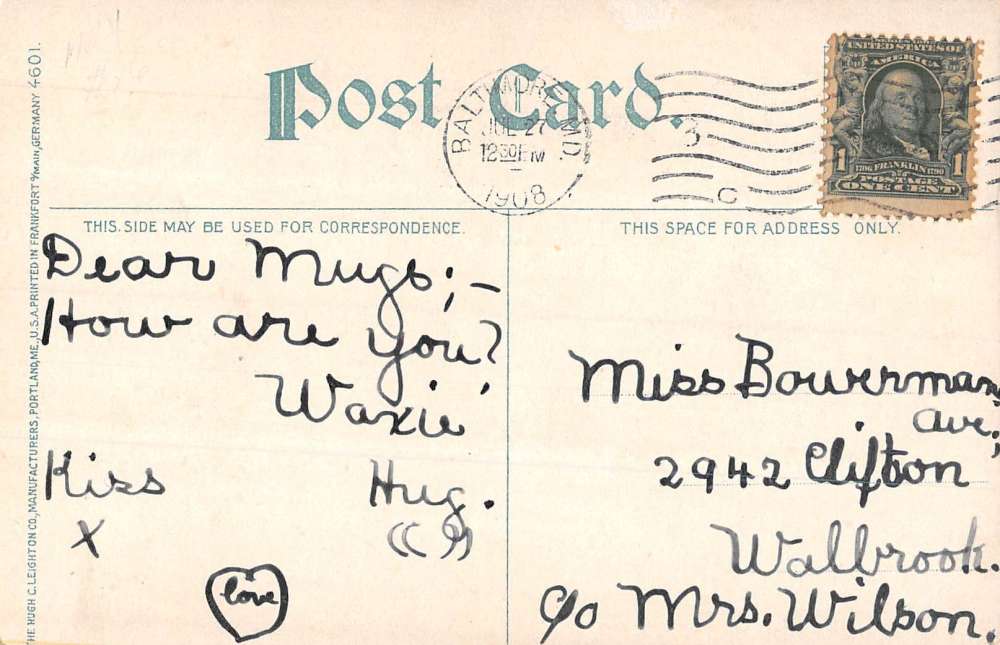 Post Card.
BALTIMORE, MD.
JUL 27
12 30 PM
1908
3
C
UNITED STATES OF
AMERICA
1706 FRANKLIN 1790
POSTAGE
1 1
ONE CENT
THE HUGH C. LEIGHTON CO., MANUFACTURERS, PORTLAND, ME., U.S.A. PRINTED IN FRANKFORT a/MAIN, GERMANY 4601.
THIS SIDE MAY BE USED FOR CORRESPONDENCE.
Dear Mugs;-
How are you?
Waxie
Kiss Hug.
X (( ))
love
THIS SPACE FOR ADDRESS ONLY.
Miss Bowerman,
Ave,
2942 Clifton
Walbrook.
c/o Mrs. Wilson.